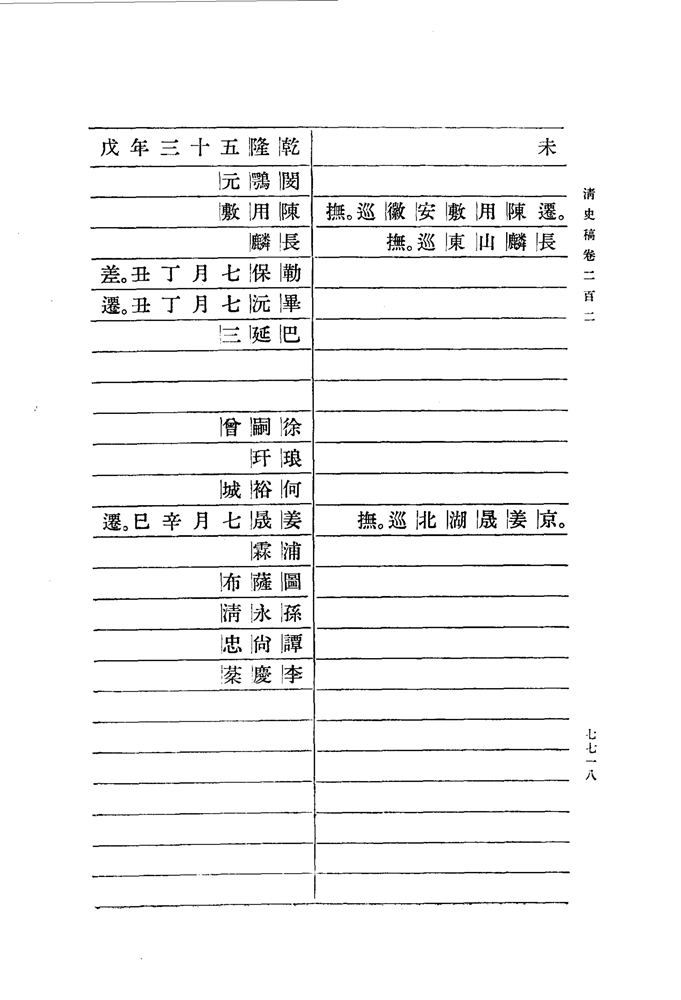 清史稿卷二百二
七七一八
未
遷。陳用敷安徽巡撫。
長麟山東巡撫。
京。姜晟湖北巡撫。
乾隆五十三年戊
閔鶚元
陳用敷
長麟
勒保七月丁丑差。
畢沅七月丁丑遷。
巴延三
徐嗣曾
琅玕
何裕城
姜晟七月辛巳遷。
浦霖
圖薩布
孫永清
譚尙忠
李慶棻